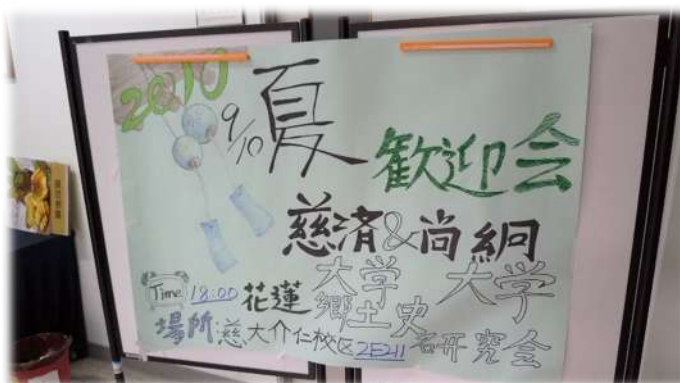 2010
9/10 夏 歓迎会
慈済&尚絅
大学 大学
Time 18:00 花蓮郷土史
研究会
場所:慈大介仁校区2E211